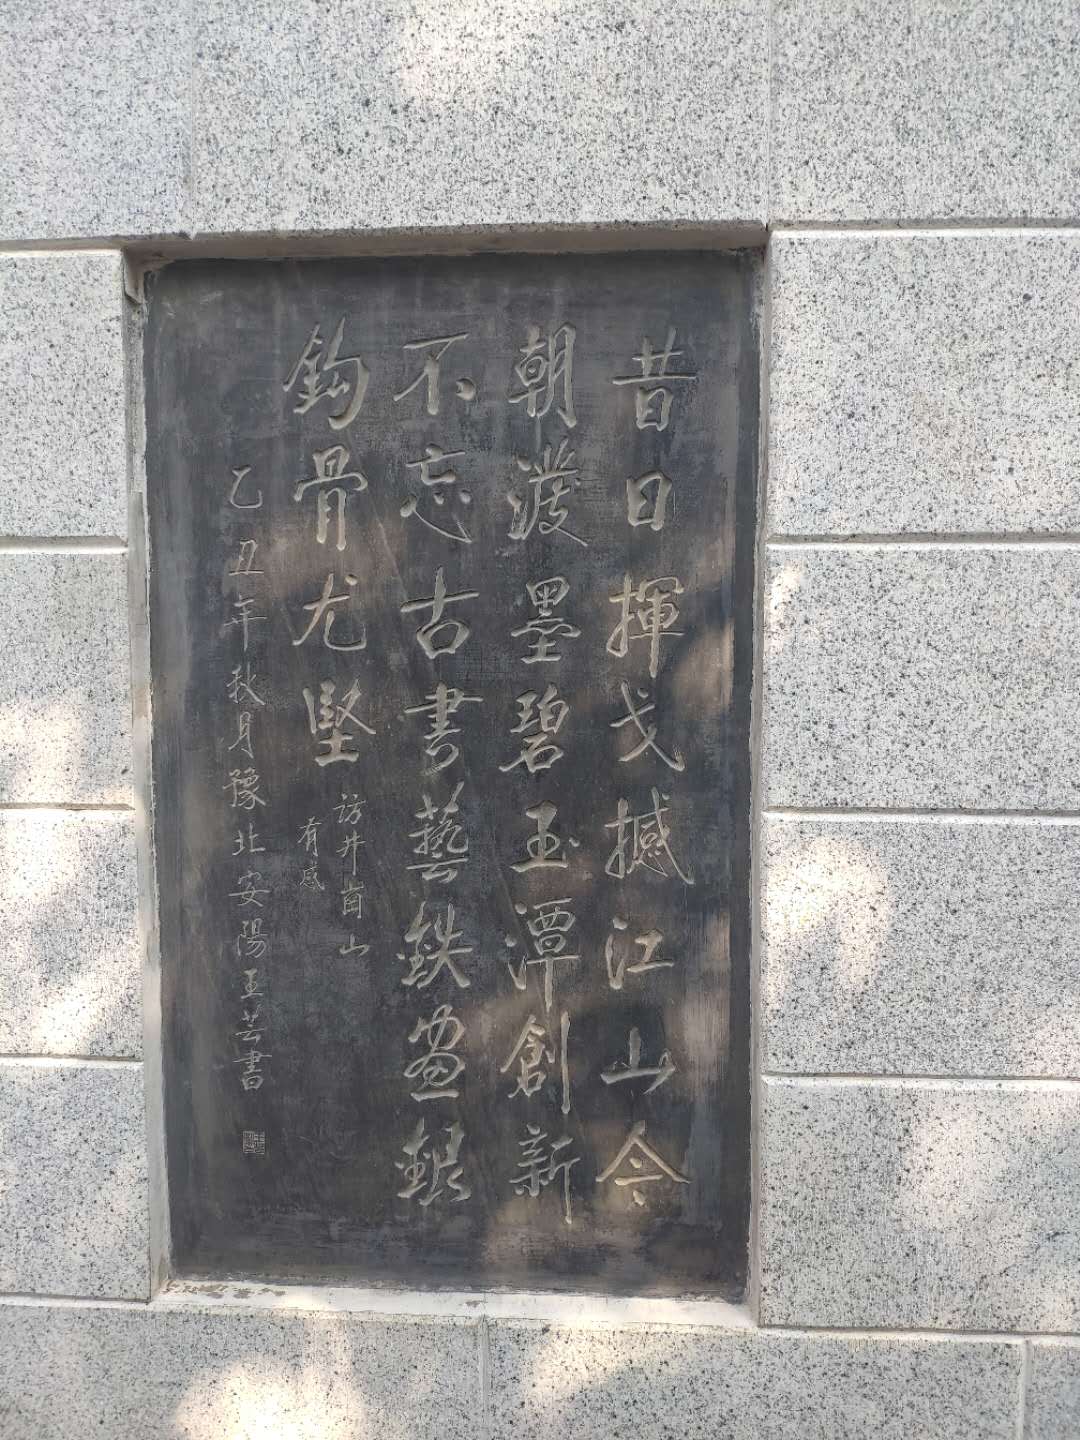 昔日揮戈撼江山今
朝潑墨碧玉潭創新
不忘古書藝鉄畫銀
鈎骨尤堅
訪井崗山
有感
乙丑年秋月豫北安陽王芸書